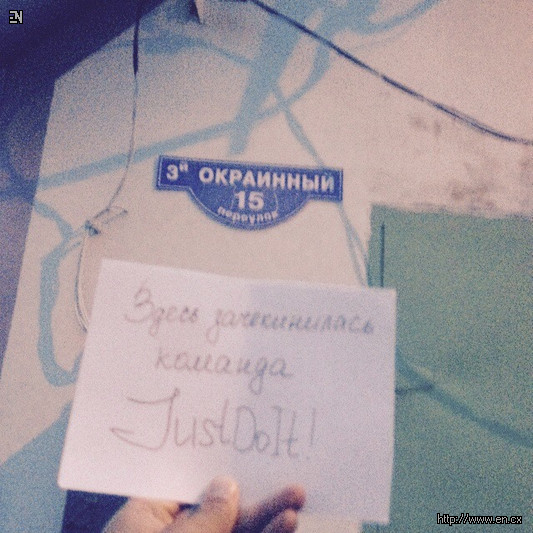 EN
3й ОКРАИННЫЙ
15
переулок
Здесь зачекинилась
команда
JustDoIt!
http://www.en.cx